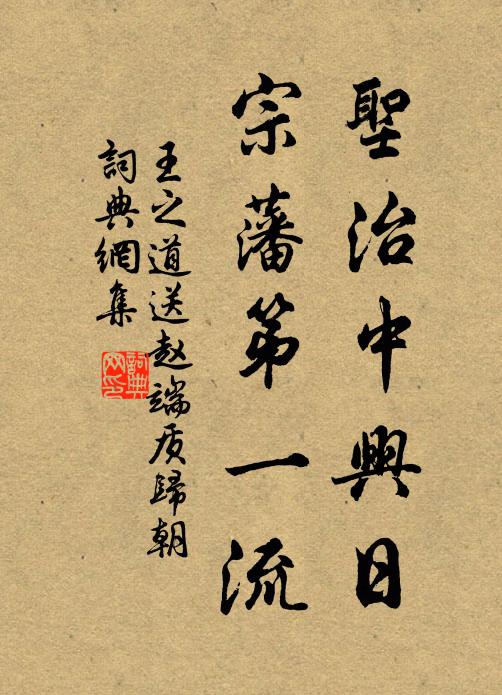 聖治中興日
宗藩第一流
王之道送赵端质歸朝
詞典網集